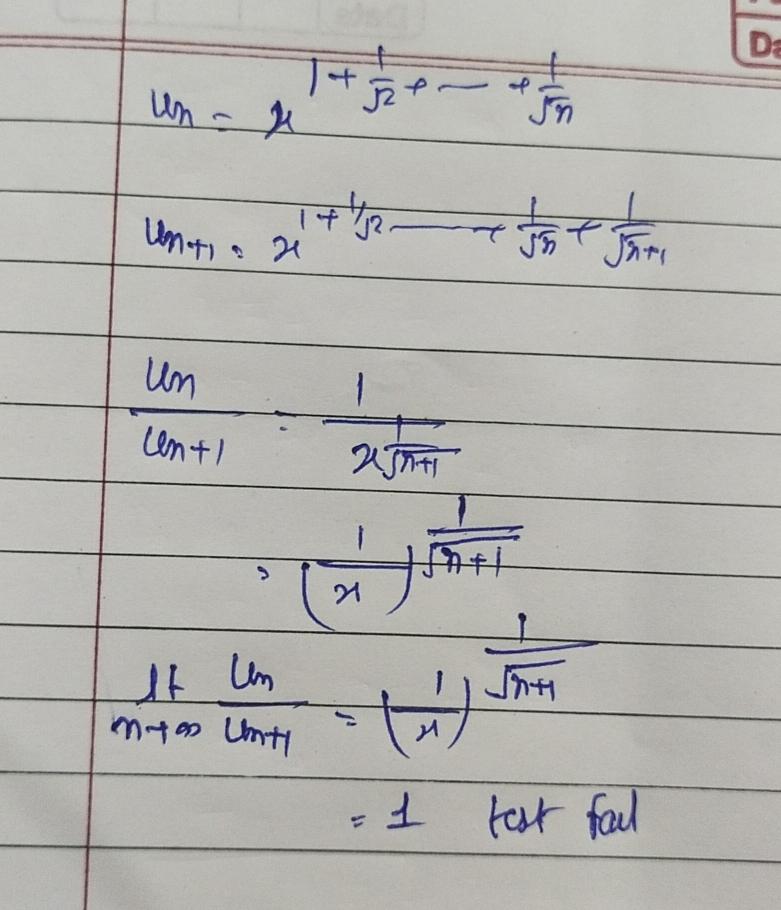 Da
Un = x^(1 + 1/√2 + — + 1/√n)
Un+1 = x^(1 + 1/√2 — + 1/√n + 1/√n+1)
Un/Un+1 = 1/x^(1/√n+1)
= (1/x)^(1/√n+1)
lt n→∞ Un/Un+1 = (1/x)^(1/√n+1)
= 1 test fail